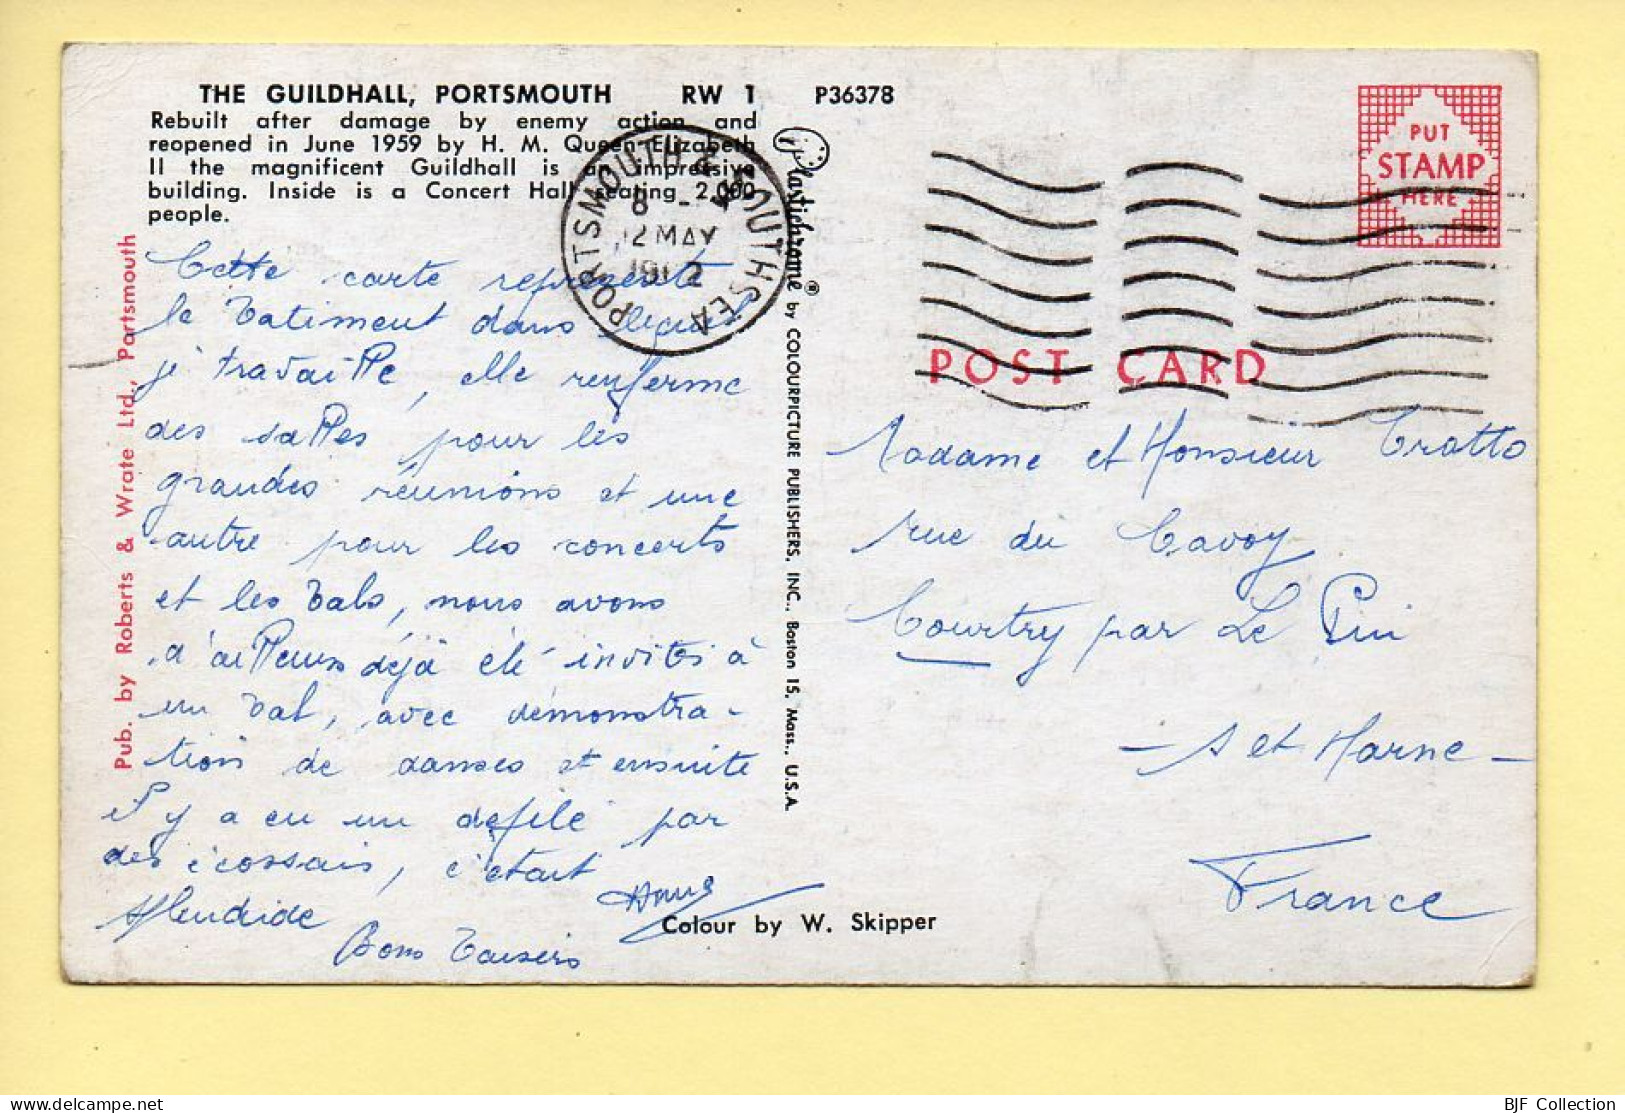 THE GUILDHALL, PORTSMOUTH RW 1 P36378
Rebuilt after damage by enemy action and
reopened in June 1959 by H. M. Queen Elizabeth
II the magnificent Guildhall is an impressive
building. Inside is a Concert Hall seating 2,000
people.
Cette carte représente
le batiment dans lequel
je travaille, elle renferme
des salles pour les
grandes réunions et une
autre pour les concerts
et les bals, nous avons
d'ailleurs déjà été invités à
un bal, avec démonstra-
tion de danses et ensuite
il y a eu un défilé par
des écossais, c'était
splendide
Bons baisers
Pub. by Roberts & Wrate Ltd., Portsmouth
Plastichrome ® by COLOURPICTURE PUBLISHERS, INC., Boston 15, Mass., U.S.A.
PORTSMOUTH & SOUTHSEA
8 -
12 MAY
PUT
STAMP
HERE
POST CARD
Madame et Monsieur Tratto
rue du Cavoy
Courtry par Le Pin
- S et Marne -
France
Colour by W. Skipper
BJF Collection